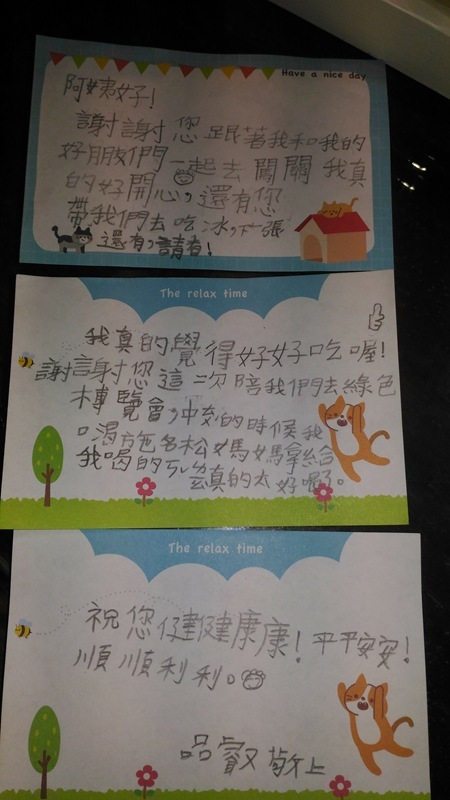 Have a nice day
阿姨好!
謝謝您跟著我和我的
好朋友們一起去闖關我真
的好開心,還有您
帶我們去吃冰,
還有,請看!
The relax time
我真的覺得好好吃喔!
謝謝您這一次陪我們去綠色
博覽會,中途的時候我
口渴施名松媽媽拿給
我喝的ㄋㄟ真的太好喝了。
The relax time
祝您健健康康!平平安安!
順順利利。
品叡敬上